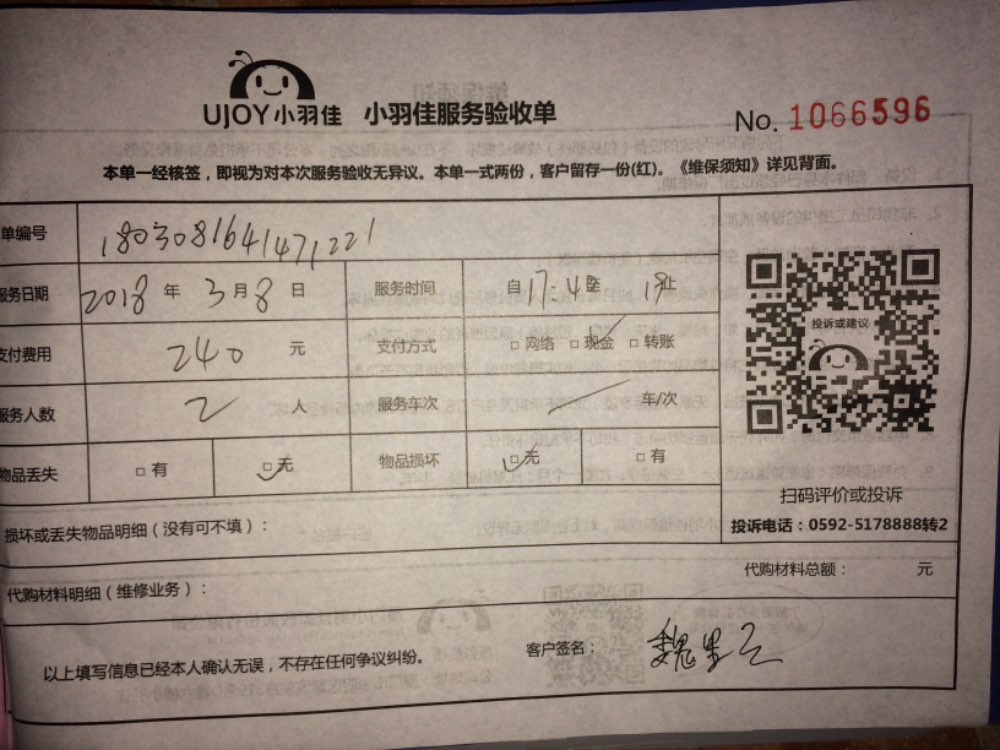 UJOY小羽佳 小羽佳服务验收单
No. 1066596
本单一经核签，即视为对本次服务验收无异议。本单一式两份，客户留存一份(红)。《维保须知》详见背面。
单编号 1803081641471221
服务日期 2018 年 3 月 8 日 服务时间 自 17:4 至 19 止
支付费用 240 元 支付方式 □ 网络 □ 现金 □ 转账
服务人数 2 人 服务车次 车/次
物品丢失 □ 有 □ 无 物品损坏 □ 无 □ 有
投诉或建议
扫码评价或投诉
投诉电话：0592-5178888转2
损坏或丢失物品明细（没有可不填）：
代购材料明细（维修业务）：
代购材料总额： 元
以上填写信息已经本人确认无误，不存在任何争议纠纷。
客户签名： 魏